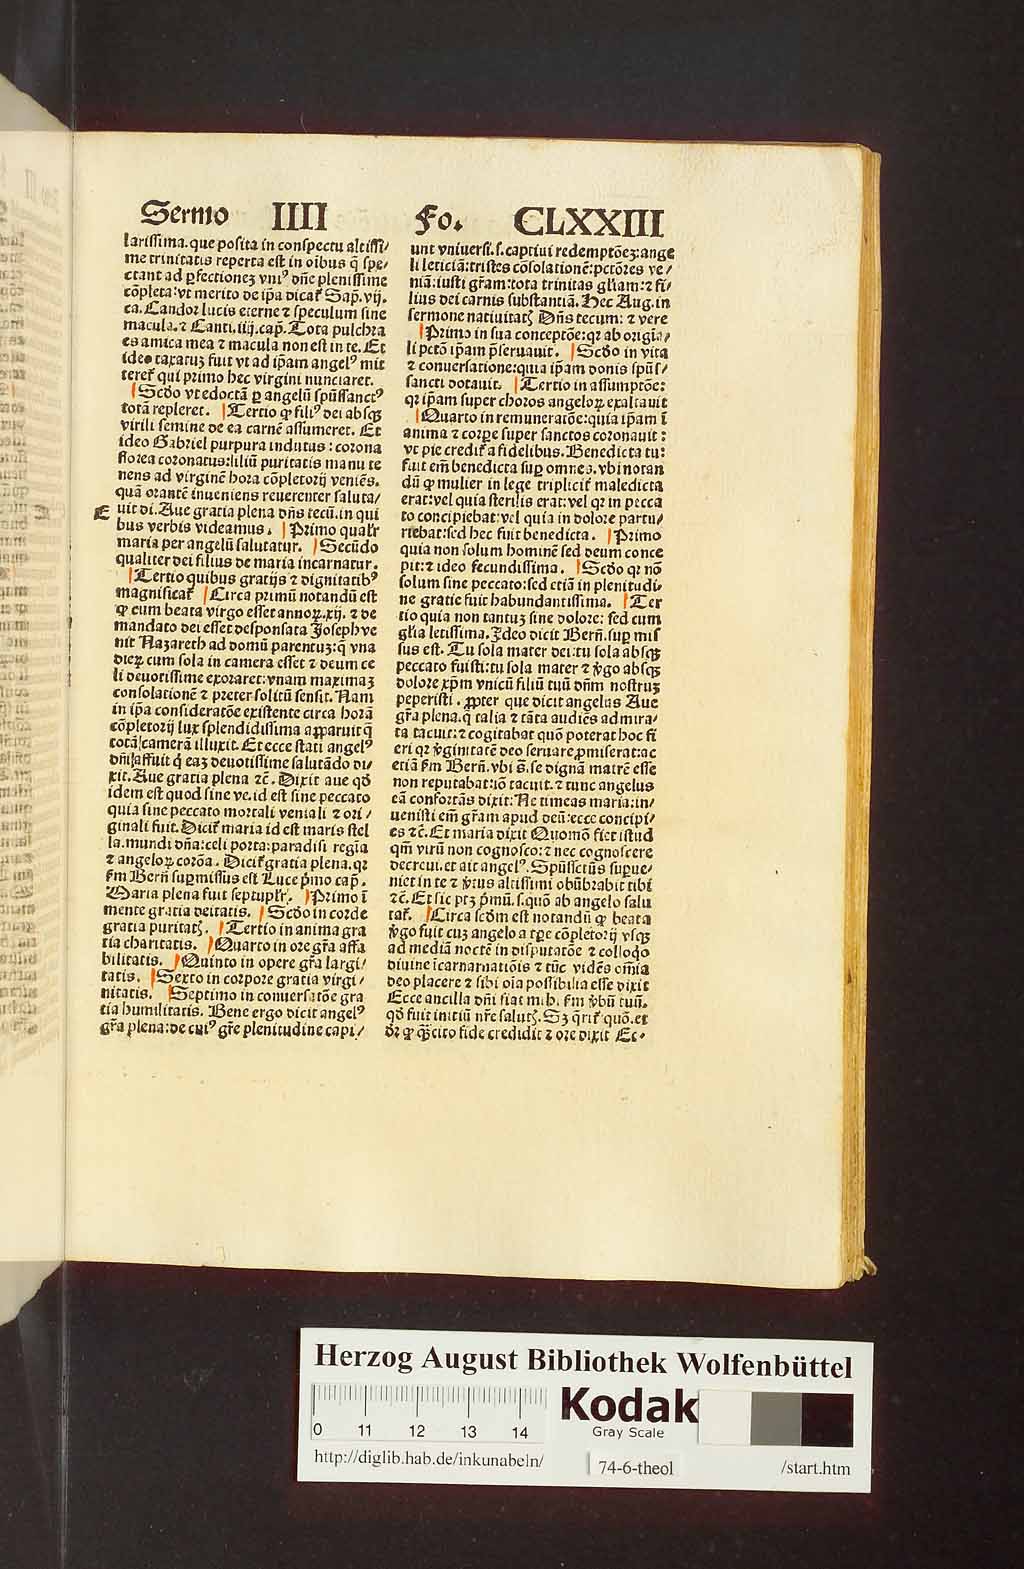 Sermo IIII Fo. CLXXIII
larissima. que posita in conspectu altissi/
me trinitatis reperta est in oībus q̄ spe/
ctant ad ꝑfectionez vniꝰ dn̄e plenissime
cōpleta: vt merito de ip̄a dicat᷑ Sap. vij.
ca. Candor lucis eterne ⁊ speculum sine
macula. ⁊ Canti. iiij. cap̄. Tota pulchra
es amica mea ⁊ macula non est in te. Et
ideo taxatuz fuit vt ad ip̄am angelꝰ mit
teret᷑ qui primo hec virgini nunciaret.
Scd̄o vt edoctā ꝑ angelū spūssanctꝰ
totā repleret. Tertio ꝙ filiꝰ dei absqꝫ
virili semine de ea carnē assumeret. Et
ideo Gabriel purpura indutus: corona
florea coronatus: liliū puritatis manu te
nens ad virginē hora cōpletorij veniēs.
quā orantē inueniens reuerenter saluta/
E uit di. Aue gratia plena dn̄s tecū. in qui
bus verbis videamus. Primo qualr̄
maria per angelū salutatur. Secūdo
qualiter dei filius de maria incarnatur.
Tertio quibus gratijs ⁊ dignitatibꝰ
magnificat᷑ Circa primū notandū est
ꝙ cum beata virgo esset annoꝝ. xij. ⁊ de
mandato dei esset desponsata Joseph ve
nit Nazareth ad domū parentuz: q̄ vna
dieꝝ cum sola in camera esset ⁊ deum ce
li deuotissime exoraret: vnam maximaz
consolationē ⁊ preter solitū sensit. Nam
in ip̄a consideratōe existente circa horā
cōpletorij lux splendidissima apparuit q̄
totā camerā illuxit. Et ecce stati angelꝰ
dn̄i affuit q̄ eaz deuotissime salutādo di/
xit. Aue gratia plena ⁊c̄. Dixit aue qd̄
idem est quod sine ve. id est sine peccato
quia sine peccato mortali veniali ⁊ ori/
ginali fuit. Dicit᷑ maria id est maris stel
la. mundi dn̄a: celi porta: paradisi regia
⁊ angeloꝝ corōa. Dicit᷑ gratia plena. qꝛ
ẜm Bern̄ suꝑ missus est Luce pͥmo cap̄.
Maria plena fuit septuplr̄. Primo ī
mente gratia deitatis. Scd̄o in corde
gratia puritatꝭ. Tertio in anima gra
tia charitatis. Quarto in ore gr̄a affa
bilitatis. Quinto in opere gr̄a largi/
tatis. Sexto in corpore gratia virgi/
nitatis. Septimo in conuersatōe gra
tia humilitatis. Bene ergo dicit angelꝰ
gr̄a plena: de cuiꝰ gr̄e plenitudine capi/
unt vniuersi. s. captiui redemptōez: ange
li leticiā: tristes cōsolationē: pctōres ve/
niā: iusti gr̄am: tota trinitas gl̄iam: ⁊ fi/
lius dei carnis substantiā. Hec Aug. in
sermone natiuitatꝭ Dn̄s tecum: ⁊ vere
Primo in sua conceptōe: qꝛ ab origīa/
li pctō ip̄am p̄seruauit. Scd̄o in vita
⁊ conuersatione: quia ip̄am donis spūs/
sancti dotauit. Tertio in assumptōe:
qꝛ ip̄am super choros angeloꝝ exaltauit
Quarto in remuneratōe: quia ip̄am ī
anima ⁊ corꝑe super sanctos coronauit:
vt pie credit᷑ a fidelibus. Benedicta tu:
fuit em̄ benedicta suꝑ omnes. vbi notan
dū ꝙ mulier in lege triplicit᷑ maledicta
erat: vel quia sterilis erat: vel qꝛ in pecca
to concipiebat: vel quia in dolore partu/
riebat: sed hec fuit benedicta. Primo
quia non solum hominē sed deum conce
pit: ⁊ ideo fecundissima. Scd̄o qꝛ nō
solum sine peccato: sed etiā in plenitudi/
ne gratie fuit habundantissima. Ter
tio quia non tantuz sine dolore: sed cum
gl̄ia letissima. Ideo dicit Bern̄. suꝑ mis
sus est. Tu sola mater dei: tu sola absqꝫ
peccato fuisti: tu sola mater ⁊ v̓go absqꝫ
dolore xp̄m vnicū filiū tuū dn̄m nostruz
peperisti. ꝓpter que dicit angelus Aue
gr̄a plena. q̄ talia ⁊ tāta audiēs admira/
ta tacuit: ⁊ cogitabat quō poterat hoc fi
eri qꝛ v̓ginitatē deo seruare ꝓmiserat: ac
etiā ẜm Bern̄. vbi s̄. se dignā matrē esse
non reputabat: iō tacuit. ⁊ tunc angelus
eā confortās dixit: Ne timeas maria: in/
uenisti em̄ gr̄am apud deū: ecce concipi/
es ⁊c̄. Et maria dixit Quomō fiet istud
qm̄ virū non cognosco: ⁊ nec cognoscere
decreui. et ait angelꝰ. Spūssctūs suꝑue/
niet in te ⁊ v̓tus altissimi obūbrabit tibi
⁊c̄. Et sic ptꝫ pͥmū. s. quō ab angelo salu
tat᷑. Circa scd̄m est notandū ꝙ beata
v̓go fuit cuz angelo a tꝑe cōpletorij vsqꝫ
ad mediā noctē in disputatōe ⁊ colloqͦo
diuine īcarnarnatiōis ⁊ tūc vidēs om̄ia
deo placere ⁊ sibi oīa possibilia esse dixit
Ecce ancilla dn̄i fiat mihi ẜm v̓bū tuū.
qd̄ fuit initiū nr̄e salutꝭ. Sꝫ q̄rit᷑ quō. et
dr̄ ꝙ qͣꝫcito fide credidit ⁊ ore dixit Ec/
Herzog August Bibliothek Wolfenbüttel
0 11 12 13 14
Kodak
Gray Scale
http://diglib.hab.de/inkunabeln/ 74-6-theol /start.htm